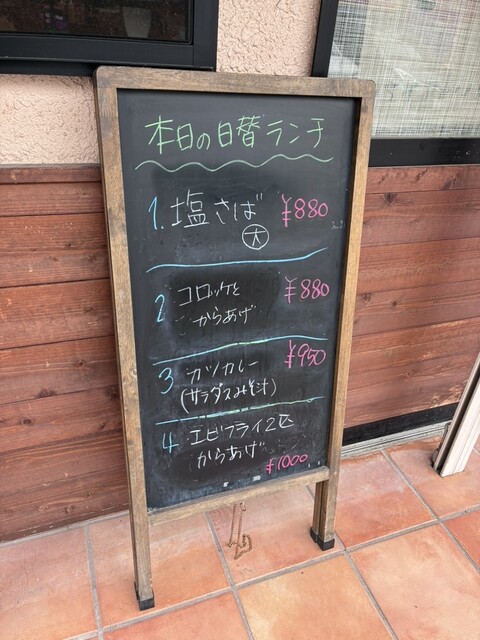 本日の日替ランチ
1. 塩さば ¥880
大
2 コロッケと ¥880
からあげ
3 カツカレー ¥950
(サラダスみそ汁)
4 エビフライ2匹
からあげ
¥1000